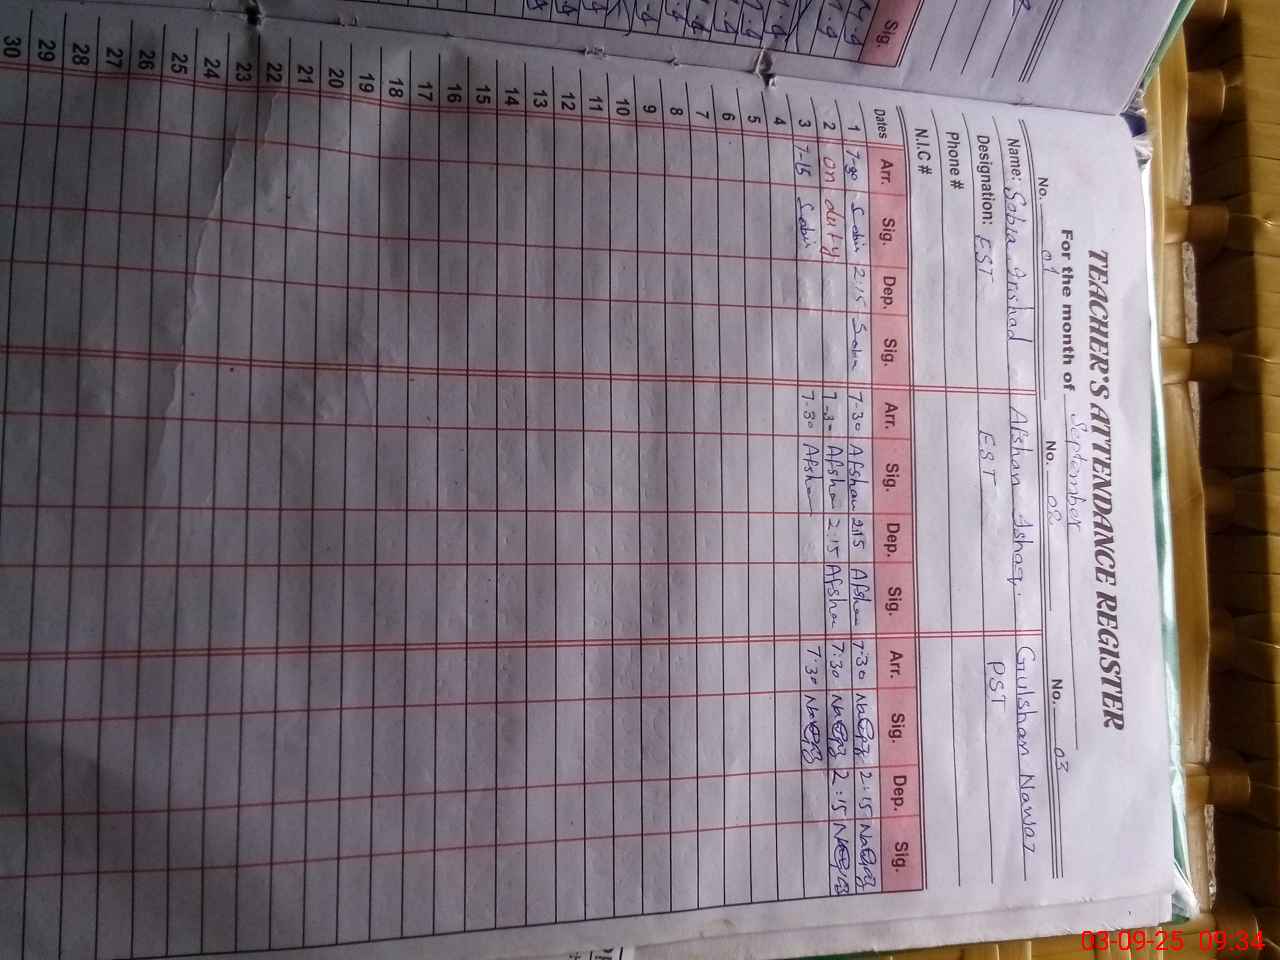 TEACHER'S ATTENDANCE REGISTER
For the month of September
No. 01 No. 02 No. 03
Name: Sobia Irshad Afshan Ishaq. Gulshan Nawaz
Designation: EST EST PST
Phone #
N.I.C #
Dates Arr. Sig. Dep. Sig. Arr. Sig. Dep. Sig. Arr. Sig. Dep. Sig.
1 7-30 Sobia 2:15 Sobia 7-30 Afshan 2:15 Afshan 7:30 2:15
2 on duty 7.30 Afshan 2:15 Afshan 7:30 2:15
3 7-15 Sobia 7-30 Afshan 7:30
4
5
6
7
8
9
10
11
12
13
14
15
16
17
18
19
20
21
22
23
24
25
26
27
28
29
30
Sig.
03-09-25 09:34